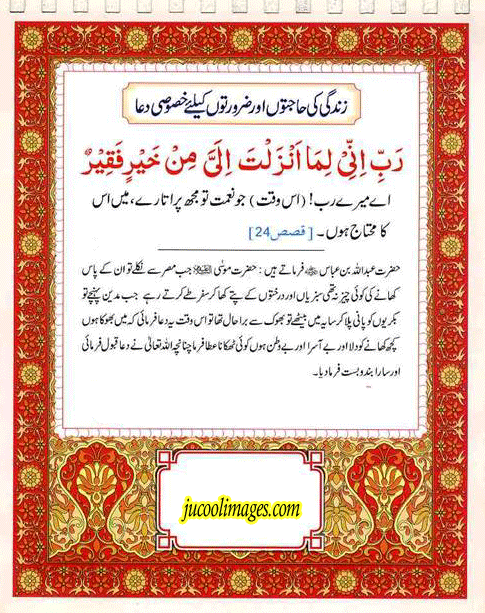 زندگی کی حاجتوں اور ضرورتوں کیلئے خصوصی دعا
رَبِّ اِنِّیْ لِمَا اَنْزَلْتَ اِلَیَّ مِنْ خَیْرٍ فَقِیْرٌ
اے میرے رب! (اس وقت) جو نعمت تو مجھ پر اتارے، میں اس
کا محتاج ہوں۔ [قصص24]
حضرت عبداللہ بن عباس ؓ فرماتے ہیں: حضرت موسٰی جب مصر سے نکلے تو ان کے پاس
کھانے کی کوئی چیز نہ تھی سبزیاں اور درختوں کے پتے کھا کر سفر طے کرتے رہے جب مدین پہنچے تو
بکریوں کو پانی پلا کر سایہ میں بیٹھے تو بھوک سے برا حال تھا تو اس وقت یہ دعا فرمائی کہ میں بھوکا ہوں
کچھ کھانے کو دلا اور بے آسرا اور بے وطن ہوں کوئی ٹھکانا عطا فرما چنانچہ اللہ تعالیٰ نے دعا قبول فرمائی
اور سارا بندوبست فرما دیا۔
jucoolimages.com